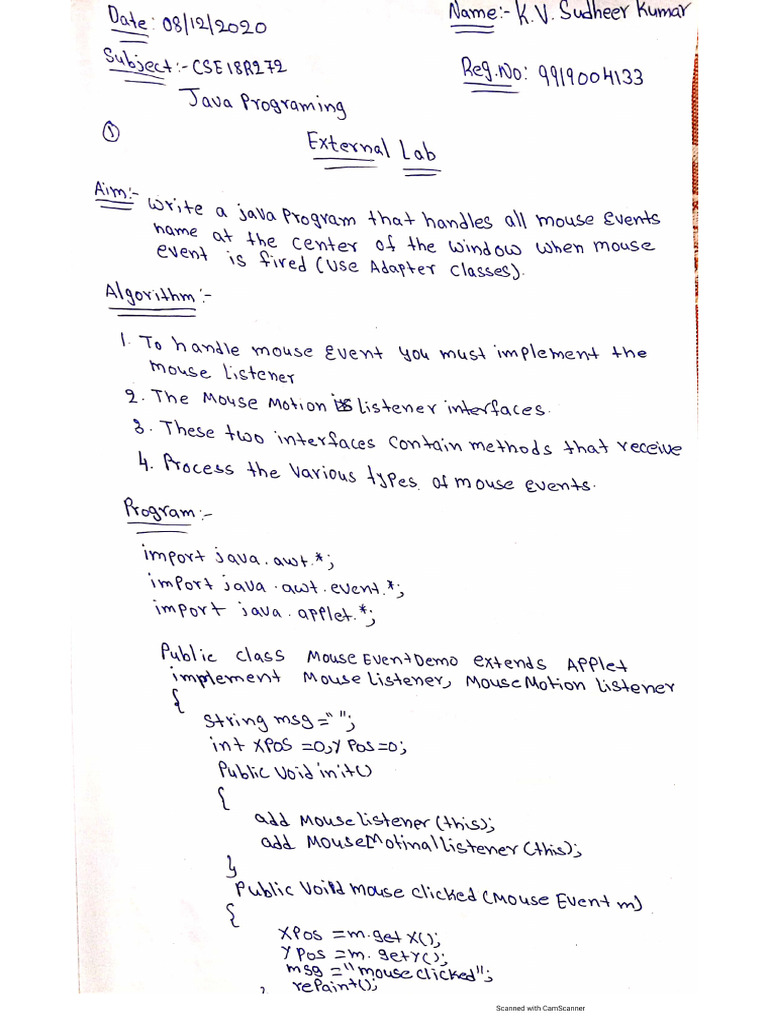 Date: 08/12/2020
Name:- K.V. Sudheer Kumar
Subject:- CSE18R272
Reg.No: 9919004133
Java Programing
①
External Lab
Aim:- Write a java Program that handles all mouse Events
name at the center of the window when mouse
event is fired (Use Adapter classes).
Algorithm:-
1. To handle mouse Event you must implement the
mouse listener
2. The Mouse Motion is listener interfaces.
3. These two interfaces contain methods that receive
4. Process the various types of mouse events.
Program:-
import java.awt.*;
import java.awt.event.*;
import java.applet.*;
Public class MouseEventDemo extends Applet
implement MouseListener, MouseMotion listener
{
String msg="";
int XPos =0,Y Pos=0;
Public void init()
{
add Mouse listener (this);
add MouseMotinal listener (this);
}
Public Void mouse clicked (Mouse Event m)
{
XPos =m.getX();
YPos =m.getY();
msg ="mouse clicked";
rePaint();
Scanned with CamScanner